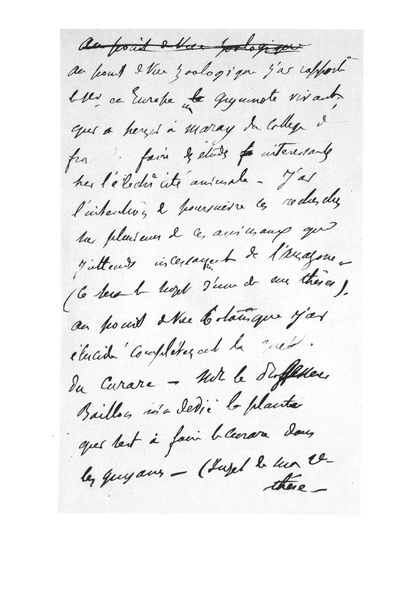 au point de vue zoologique
au point de vue zoologique j'ai rapporté
le 1er en Europe un gymnote vivant,
qui a permis à Marey du College de
fra faire des études interessantes
sur l'électricité animale - J'ai
l'intention de poursuivre ces recherches
sur plusieurs de ces animaux que
j'attends incessamment de l'Amazone -
(Ce sera le sujet d'une de mes thèses).
au point de vue botanique j'ai
élucidé complètement la quest.
du Curare - Mr le Professeur
Baillon m'a dedié la plante
qui sert à faire le curare dans
les guyanes - (Sujet de ma 2e
thèse -